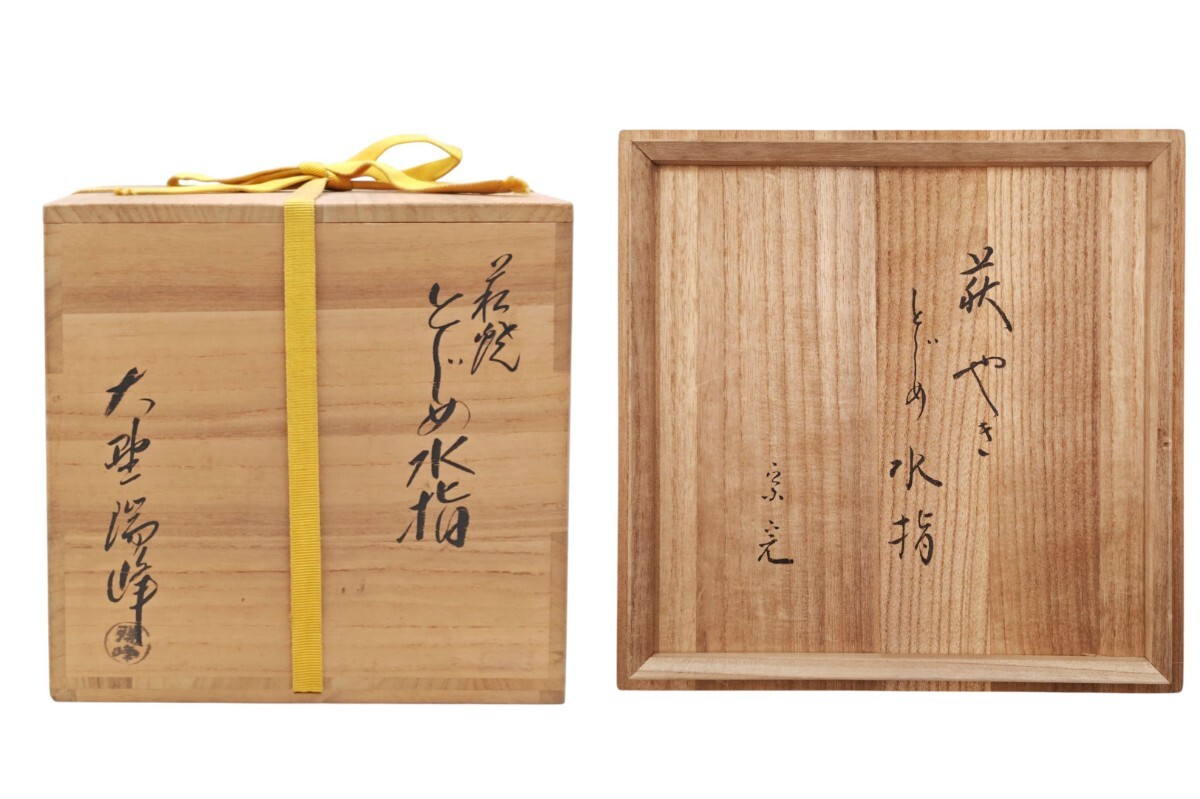 萩焼
とじめ水指
大野瑞峰
瑞峰
萩やき
とじめ
水指
宗完